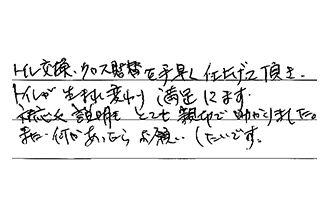 トイレ交換、クロス貼替を手早く仕上げて頂き、
トイレが生まれ変わり満足してます。
説明もとても親切で助かりました。
また何かあったらお願いしたいです。